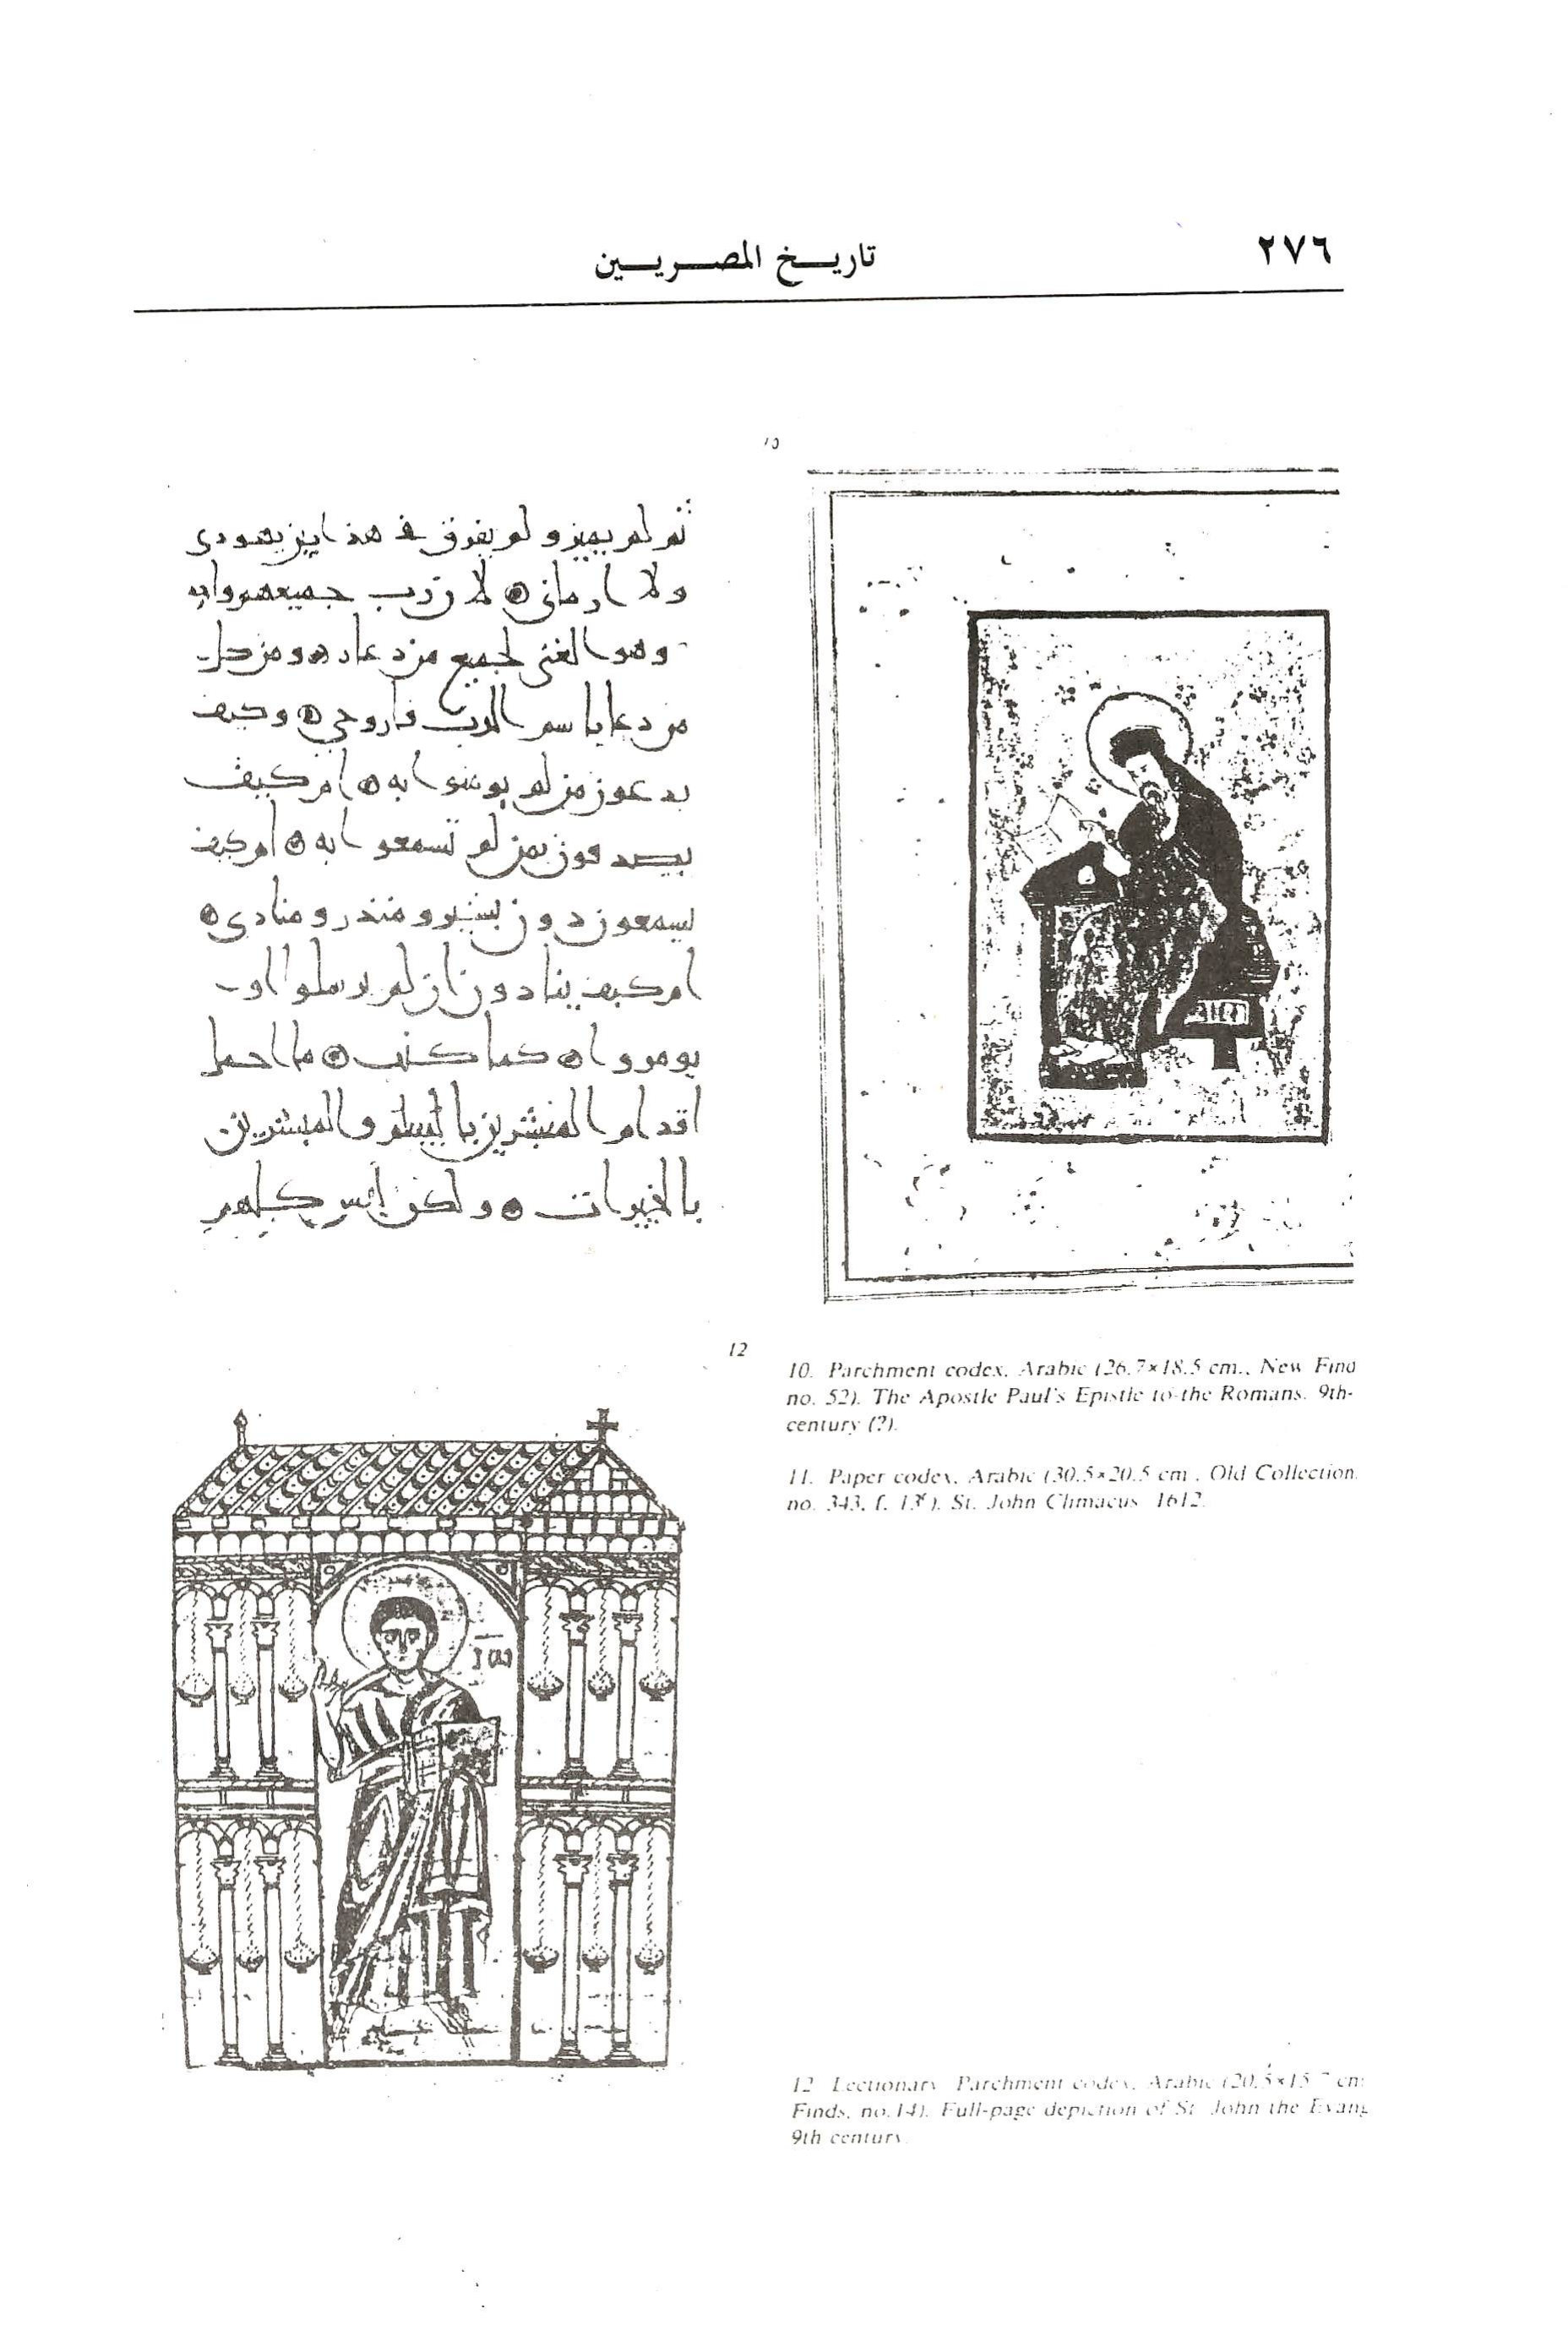 ٢٧٦
تاريخ المصريين
10
ثم لم يميز و لم يفرق في هذا بين يهودي
ولا ارماني لان رب جميعهم واحد
وهو الغني لجميع من دعاه ومن كل
من دعا باسم الرب وكيف
يدعون من لم يومنوا به ام كيف
يصدقون بمن لم تسمعوا به ام كيف
يسمعون دون بشير و منذر و منادي
ام كيف ينادون ان لم يرسلوا او
يومروا كما كتب ما اجمل
اقدام المبشرين بالسلم والمبشرين
بالخيرات ولكن ليس كلهم
10. Parchment codex, Arabic (26.7×18.5 cm., New Find
no. 52). The Apostle Paul's Epistle to the Romans. 9th-
century (?).
11. Paper codex, Arabic (30.5×20.5 cm., Old Collection,
no. 343, f. 13r). St. John Climacus. 1612.
12
ΙΩ
12. Lectionary. Parchment codex, Arabic (20.5×15.7 cm
Finds, no. 14). Full-page depiction of St. John the Evang
9th century.